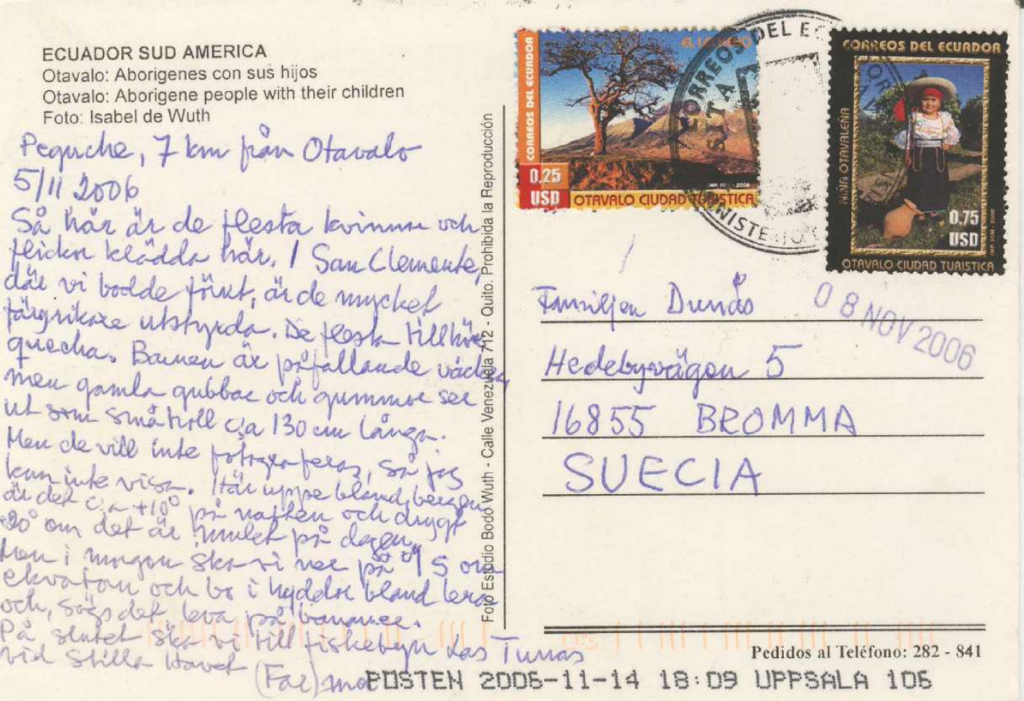 ECUADOR SUD AMERICA
Otavalo: Aborigenes con sus hijos
Otavalo: Aborigene people with their children
Foto: Isabel de Wuth
Peguche, 7 km från Otavalo
5/11 2006
Så här är de flesta kvinnor och
flickor klädda här. I San Clemente,
där vi bodde förut, är de mycket
färgrikare utstyrda. De flesta tillhör
quecha. Barnen är påfallande vackra
men gamla gubbar och gummor ser
ut som småtroll ca 130 cm långa.
Men de vill inte fotograferas, så jag
kan inte visa. Här uppe bland bergen
är det ca +10° på natten och drygt
+20° om det är mulet på dagen.
Men i morgon ska vi ner på
ekvatorn och bo i hyddor bland
och, sägs det, leva på bananer.
På slutet ska vi till fiskebyn Las Tunas
vid Stilla Havet
(Far)mor
Foto Estudio Bodo Wuth - Calle Venezuela 712 - Quito. Prohibida la Reproducción
CORREOS DEL ECUADOR
0.25
USD
OTAVALO CIUDAD TURISTICA
CORREOS DEL ECUADOR
NIÑA OTAVALEÑA
0.75
USD
OTAVALO CIUDAD TURISTICA
CORREOS DEL
08 NOV 2006
Familjen Dunås
Hedebyvägen 5
16855 BROMMA
SUECIA
Pedidos al Teléfono: 282 - 841
POSTEN 2006-11-14 18:09 UPPSALA 106